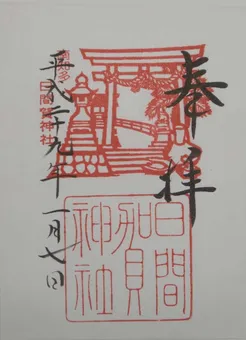 奉拝
日間賀神社
日間賀神社
平成二十九年 一月七日